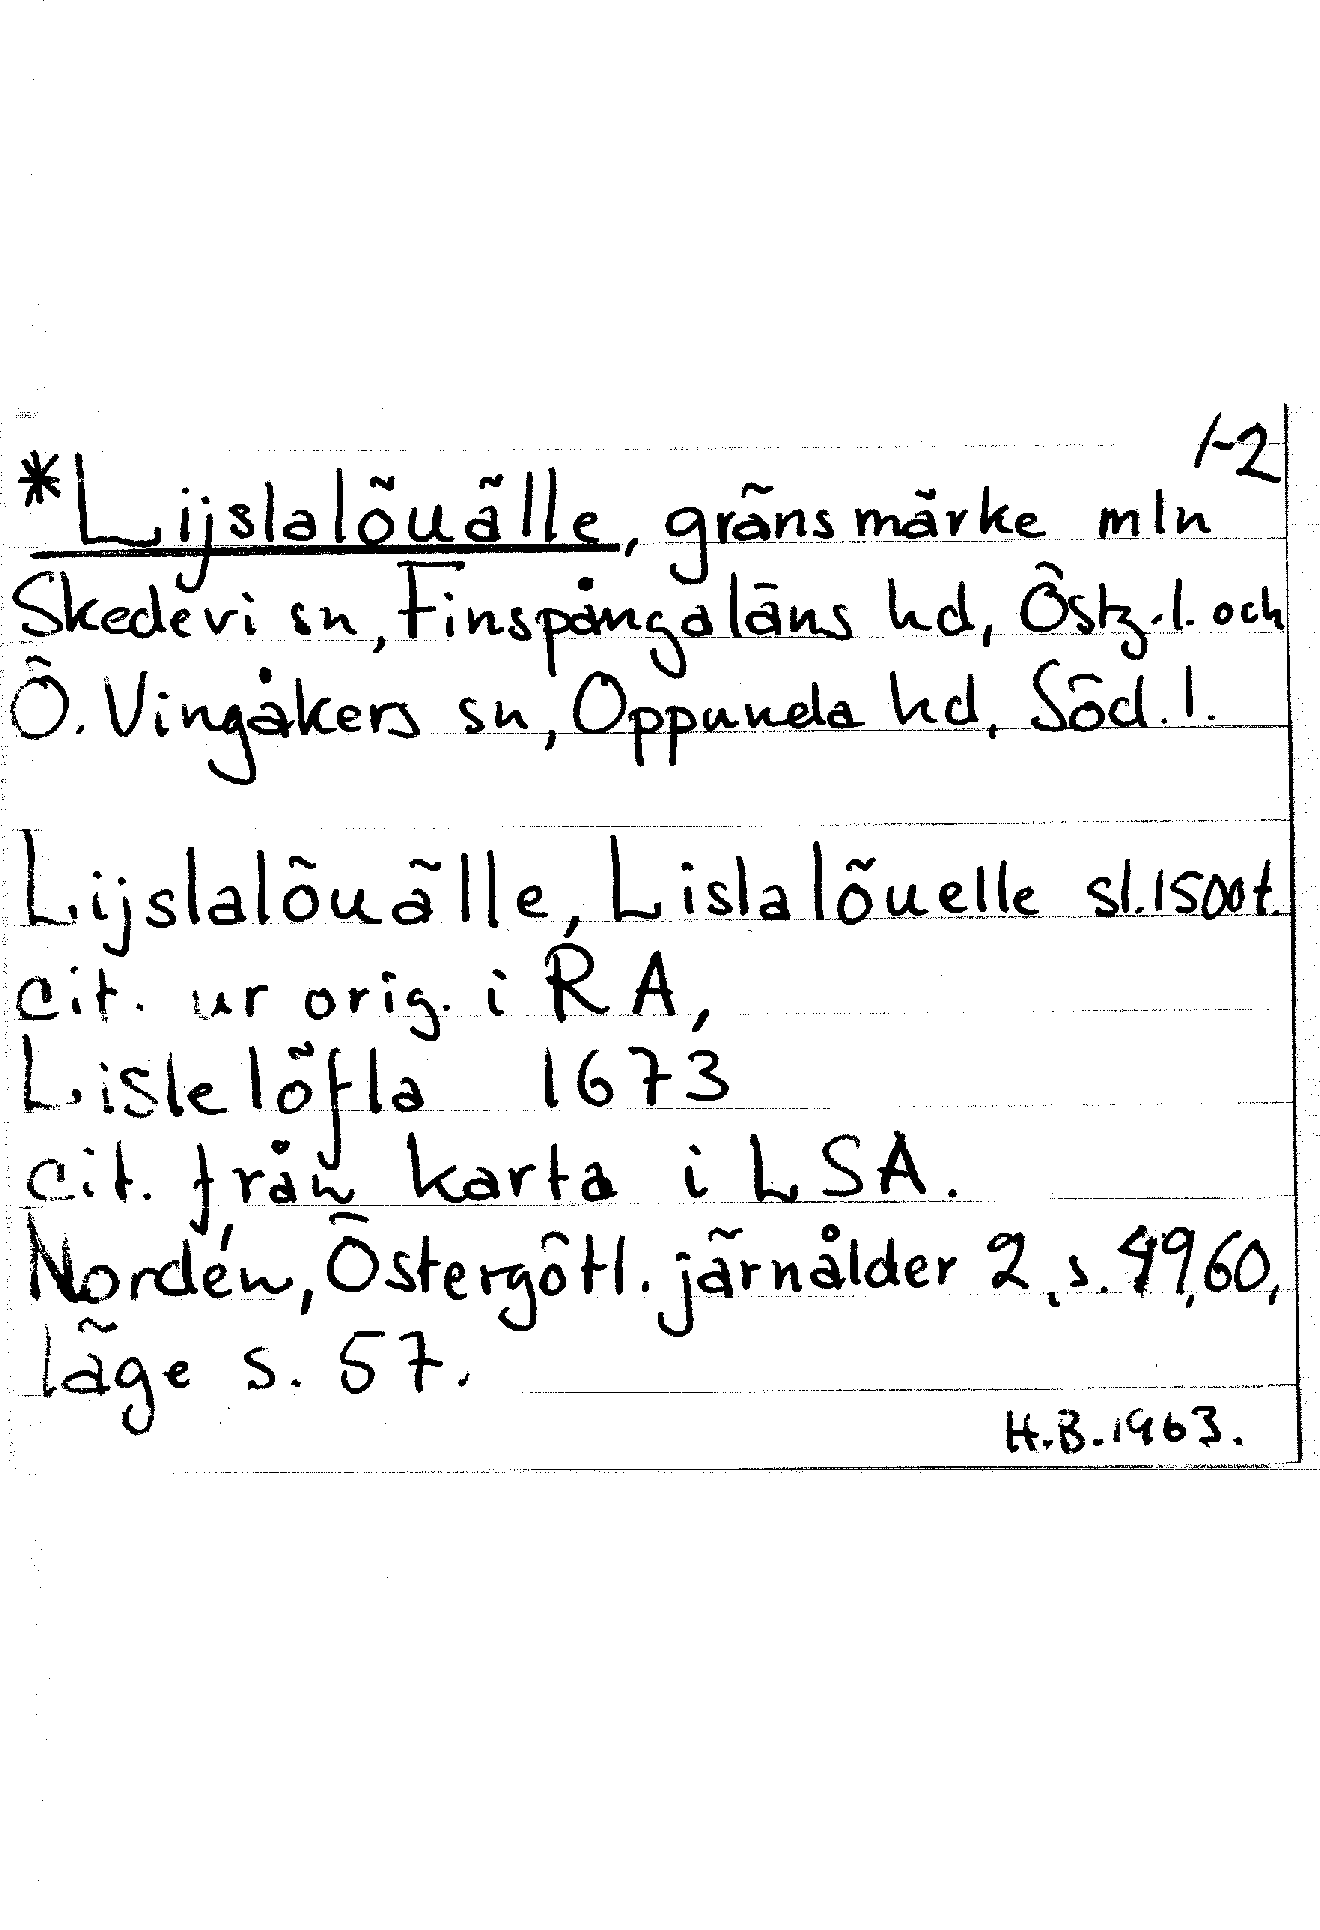 1-2
*Lijslalöuälle, gränsmärke mln
Skedevi sn, Finspångaläns hd, Östg.l. och
Ö. Vingåkers sn, Oppunda hd, Söd.l.
Lijslalöuälle, Lislalöuelle sl.1500t.
cit. ur orig. i RA,
Lislelöfla 1673
cit. från karta i LSA.
Nordén, Östergötl. järnålder 2, s. 49, 60,
läge s. 57.
H.B.1963.